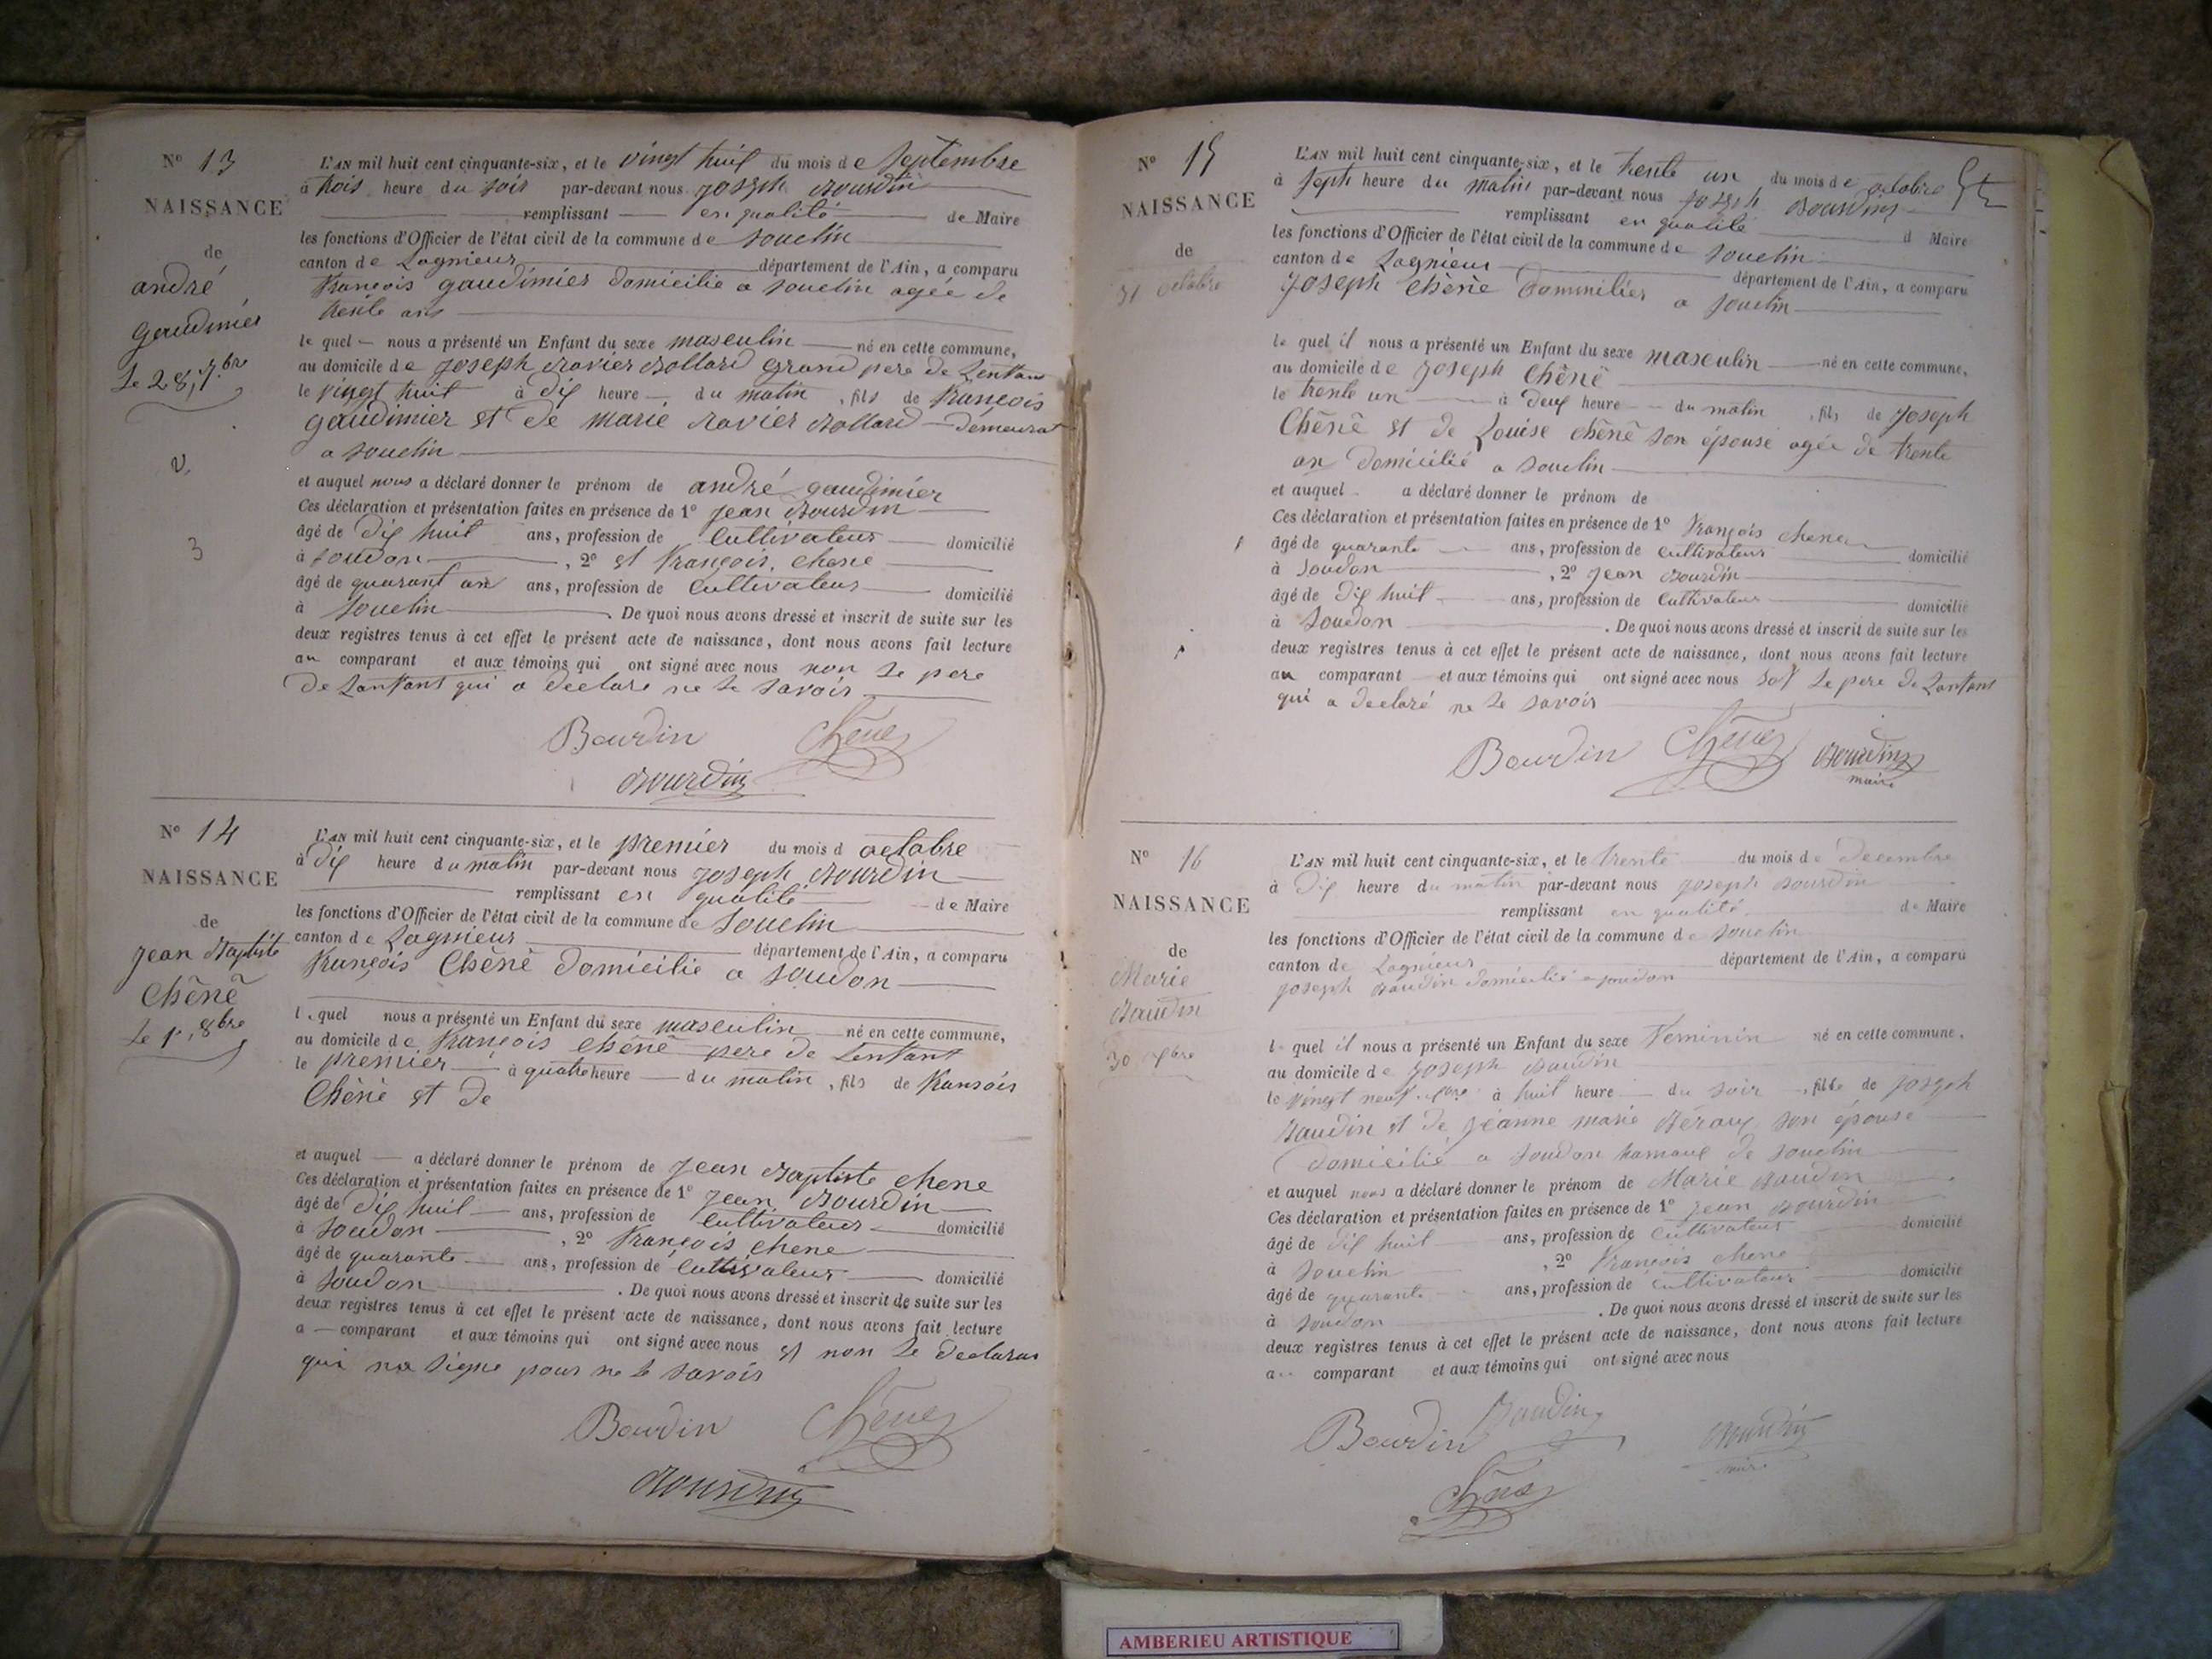 N° 13
NAISSANCE
de
andré
gaudimier
Le 28, 7bre
v.
3
L'AN mil huit cent cinquante-six, et le vingt huit du mois de Septembre
à trois heure du soir par-devant nous joseph Bourdin
remplissant en qualité de Maire
les fonctions d'Officier de l'état civil de la commune de Souclin
canton de Lagnieux département de l'Ain, a comparu
François gaudimier domicilie a Souclin agée de
trente ans
le quel nous a présenté un Enfant du sexe masculin né en cette commune,
au domicile de joseph Ravier Bollard grand pere de Lenfans
le vingt huit à dix heure du matin, fils de François
gaudimier et de marie Ravier Bollard demeurat
a Souclin
et auquel nous a déclaré donner le prénom de andré gaudimier
Ces déclaration et présentation faites en présence de 1° jean Bourdin
âgé de dix huit ans, profession de Cultivateur domicilié
à Soudon, 2° et François, chene
âgé de quarant an ans, profession de Cultivateur domicilié
à Souclin. De quoi nous avons dressé et inscrit de suite sur les
deux registres tenus à cet effet le présent acte de naissance, dont nous avons fait lecture
au comparant et aux témoins qui ont signé avec nous non Le pere
de Lanfant qui a declare ne Le savoir
Bourdin Chene
Bourdin
N° 14
NAISSANCE
de
jean Baptiste
Chêne
Le 1er, 8bre
L'AN mil huit cent cinquante-six, et le premier du mois d octobre
à dix heure du matin par-devant nous joseph Bourdin
remplissant en qualité de Maire
les fonctions d'Officier de l'état civil de la commune de Souclin
canton de Lagnieux département de l'Ain, a comparu
François Chêne domicilie a Soudon
l. quel nous a présenté un Enfant du sexe masculin né en cette commune,
au domicile de François Chêne pere de Lenfant
le premier à quatre heure du matin, fils de Fransois
Chêne et de
et auquel a déclaré donner le prénom de jean Baptiste chene
Ces déclaration et présentation faites en présence de 1° jean Bourdin
âgé de dix huit ans, profession de Cultivateur domicilié
à Soudon, 2° François chene
âgé de quarante ans, profession de Cultivateur domicilié
à Soudon. De quoi nous avons dressé et inscrit de suite sur les
deux registres tenus à cet effet le présent acte de naissance, dont nous avons fait lecture
a comparant et aux témoins qui ont signé avec nous et non Le declaran
qui na signe pour ne Le savoir
Bourdin Chene
Bourdin
N° 15
NAISSANCE
de
31 octobre
L'AN mil huit cent cinquante-six, et le trente un du mois de octobre
à sept heure du matin par-devant nous joseph Bourdin
remplissant en qualité d Maire
les fonctions d'Officier de l'état civil de la commune de Souclin
canton de Lagnieux département de l'Ain, a comparu
joseph Chêne domicilier a Souclin
le quel il nous a présenté un Enfant du sexe masculin né en cette commune,
au domicile de joseph Chêne
le trente un à deux heure du matin, fils de joseph
Chêne et de Louise chêne son épouse agée de trente
an domicilié a Souclin
et auquel a déclaré donner le prénom de
Ces déclaration et présentation faites en présence de 1° François chene
âgé de quarante ans, profession de Cultivateur domicilié
à Soudon, 2° jean Bourdin
âgé de dix huit ans, profession de Cultivateur domicilié
à Soudon. De quoi nous avons dressé et inscrit de suite sur les
deux registres tenus à cet effet le présent acte de naissance, dont nous avons fait lecture
au comparant et aux témoins qui ont signé avec nous sof Le pere de Lanfant
qui a declaré ne Le savoir
Bourdin Chene Bourdin
maire
N° 16
NAISSANCE
de
Marie
Baudin
30 Xbre
L'AN mil huit cent cinquante-six, et le trente du mois de Decembre
à dix heure du matin par-devant nous joseph Bourdin
remplissant en qualité de Maire
les fonctions d'Officier de l'état civil de la commune de Souclin
canton de Lagnieux département de l'Ain, a comparu
joseph Baudin domicilié a Soudon
l. quel il nous a présenté un Enfant du sexe Feminin né en cette commune,
au domicile de joseph Baudin
le vingt neuf Xbre à huit heure du soir, fille de joseph
Baudin et de jéanne marie Béraux son épouse
domicilié a Soudon hamaux de Souclin
et auquel nous a déclaré donner le prénom de Marie Baudin
Ces déclaration et présentation faites en présence de 1° jean Bourdin
âgé de dix huit ans, profession de Cultivateur domicilié
à Souclin, 2° François chene
âgé de quarante ans, profession de Cultivateur domicilié
à Soudon. De quoi nous avons dressé et inscrit de suite sur les
deux registres tenus à cet effet le présent acte de naissance, dont nous avons fait lecture
a comparant et aux témoins qui ont signé avec nous
Bourdin Baudin Bourdin
maire
Chene
AMBERIEU ARTISTIQUE